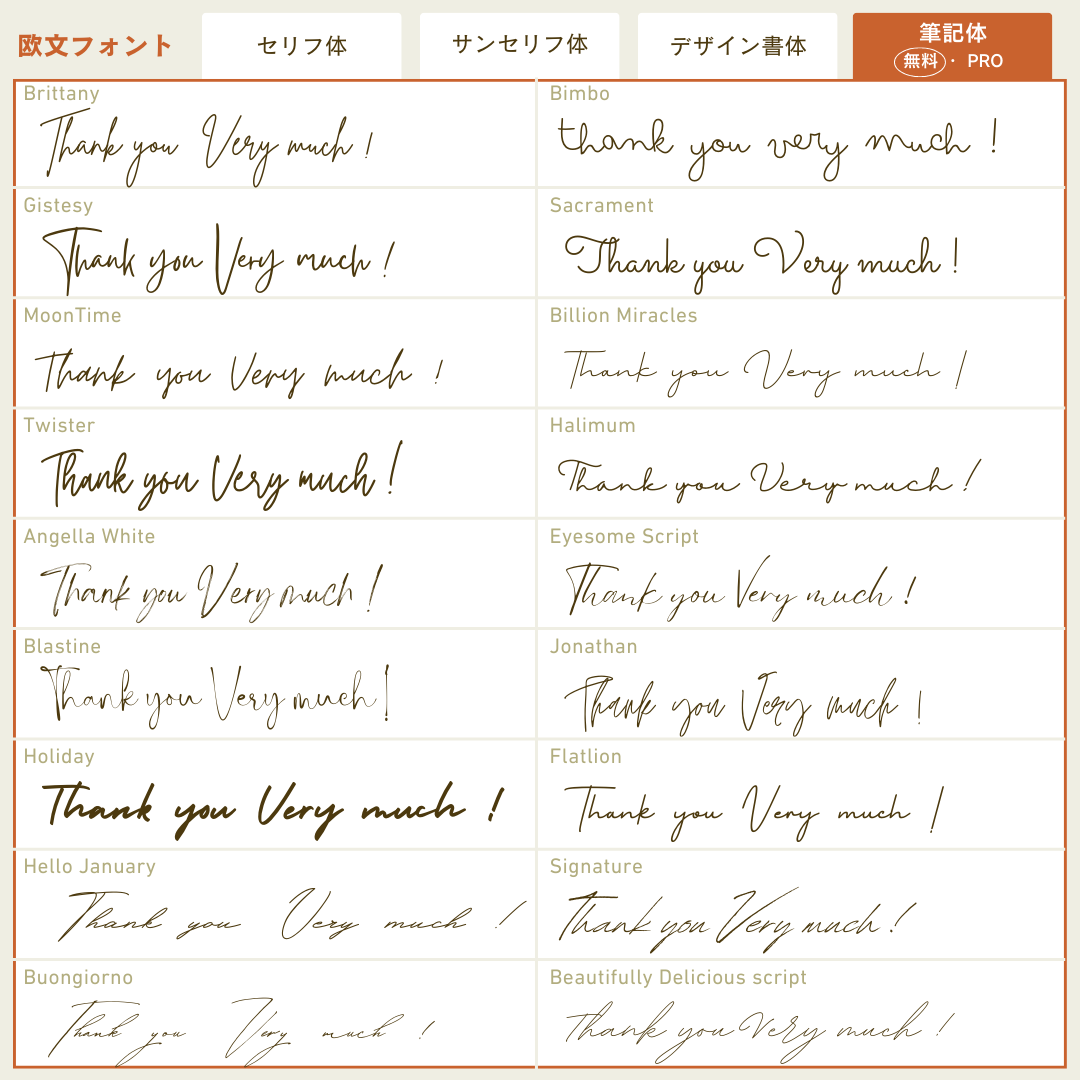 欧文フォント
セリフ体
サンセリフ体
デザイン書体
筆記体
無料・ PRO
Brittany
Thank you Very much !
Bimbo
thank you very much !
Gistesy
Thank you Very much !
Sacrament
Thank you Very much !
MoonTime
Thank you Very much !
Billion Miracles
Thank you Very much !
Twister
Thank you Very much !
Halimum
Thank you Very much !
Angella White
Thank you Very much !
Eyesome Script
Thank you Very much !
Blastine
Thank you Very much !
Jonathan
Thank you Very much !
Holiday
Thank you Very much !
Flatlion
Thank you Very much !
Hello January
Thank you Very much !
Signature
Thank you Very much !
Buongiorno
Thank you Very much !
Beautifully Delicious script
Thank you Very much !